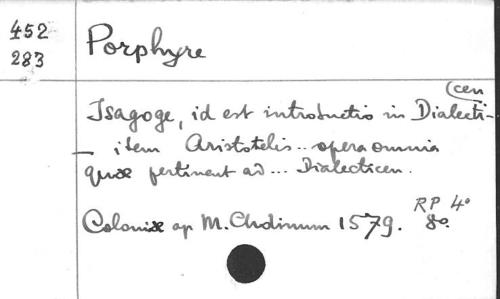 452
283
Porphyre
(cen
Isagoge, id est introductio in Dialecti-
— item Aristotelis .. opera omnia
quae pertinent ad ... Dialecticen.
Coloniae ap M. Cholinum 1579. RP 4°
8o.